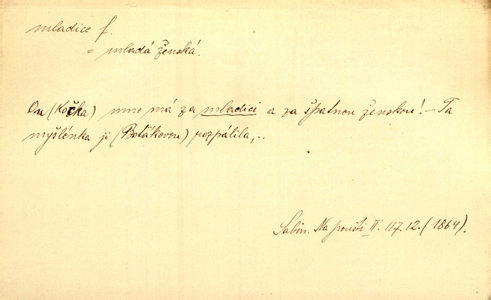 mladice f.
= mladá ženská.
On (Kočka) mne má za mladici a za špatnou ženskou! – Ta
myšlénka ji (Boťákovou) rozpálila,..
Sabin. Na poušti II. 117.12. (1864).